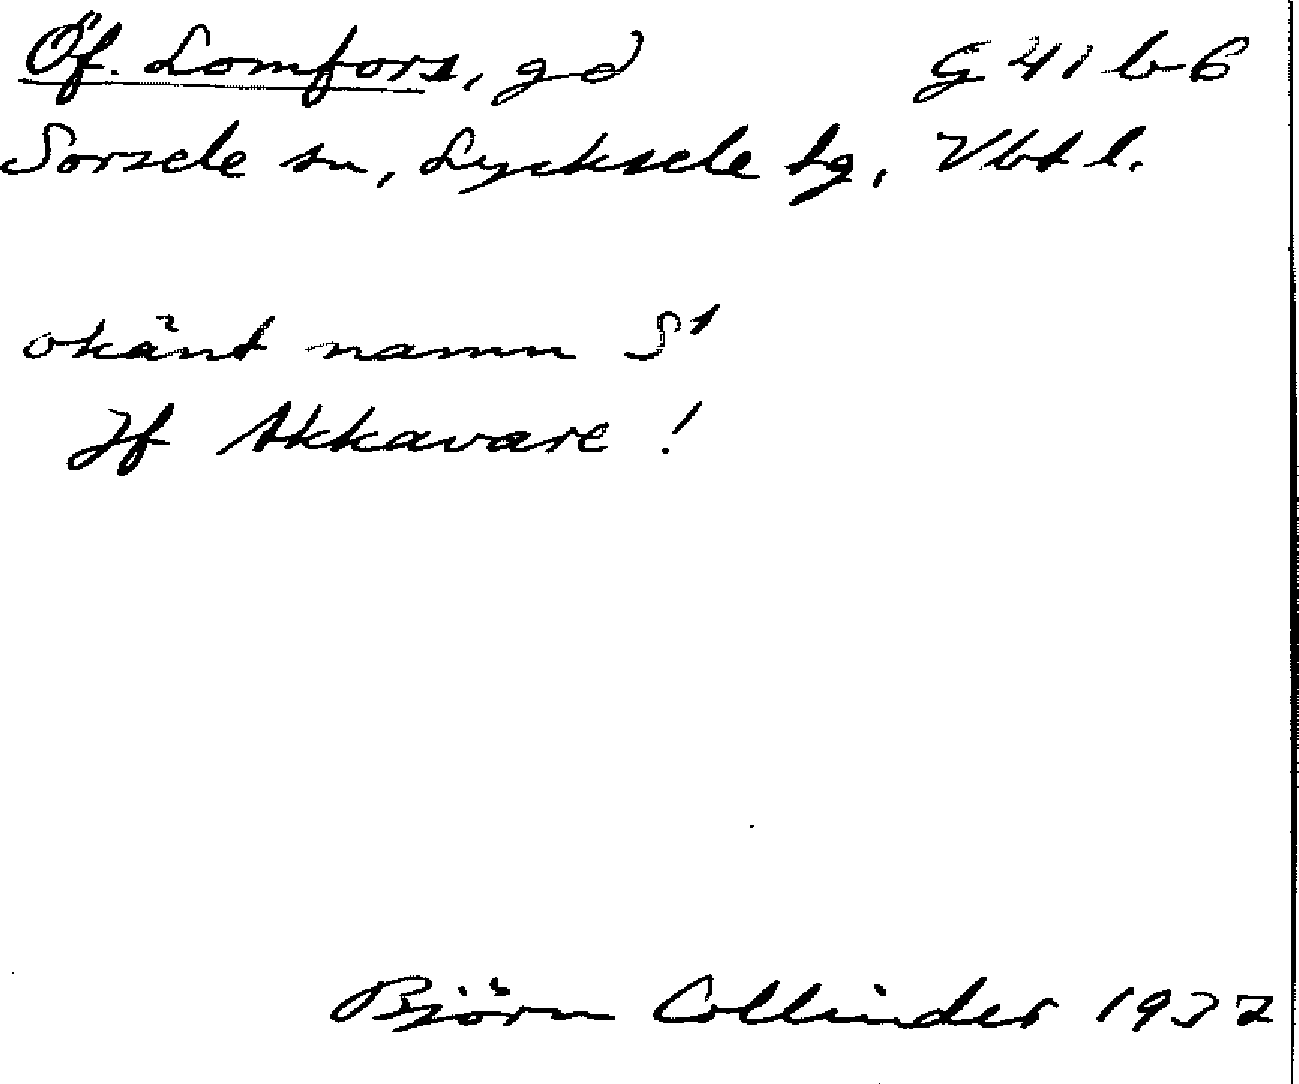 Öf. Lomfors, gd G 41 b-6
Sorsele sn, Lycksele tg, Vbt l.
okänt namn S1
Jf Akkavare !
Björn Collinder 1932